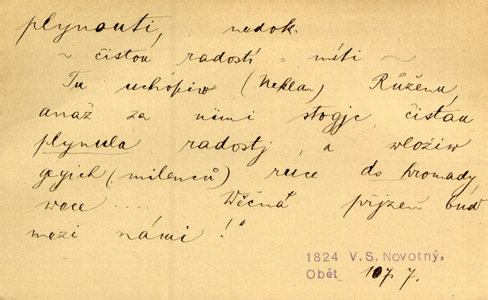 plynouti, nedok.
~ čistou radostí = míti ~
Tu uchopiw (Neklan) Růženu,
anaž za nimi stogjc čistau
plynula radostj, a wložiw
gegich (milenců) ruce do hromady,
wece .... Wěčná" přjzeň buď
mezi námi!"
1824 V.S.Novotný,
Oběť 107.7.